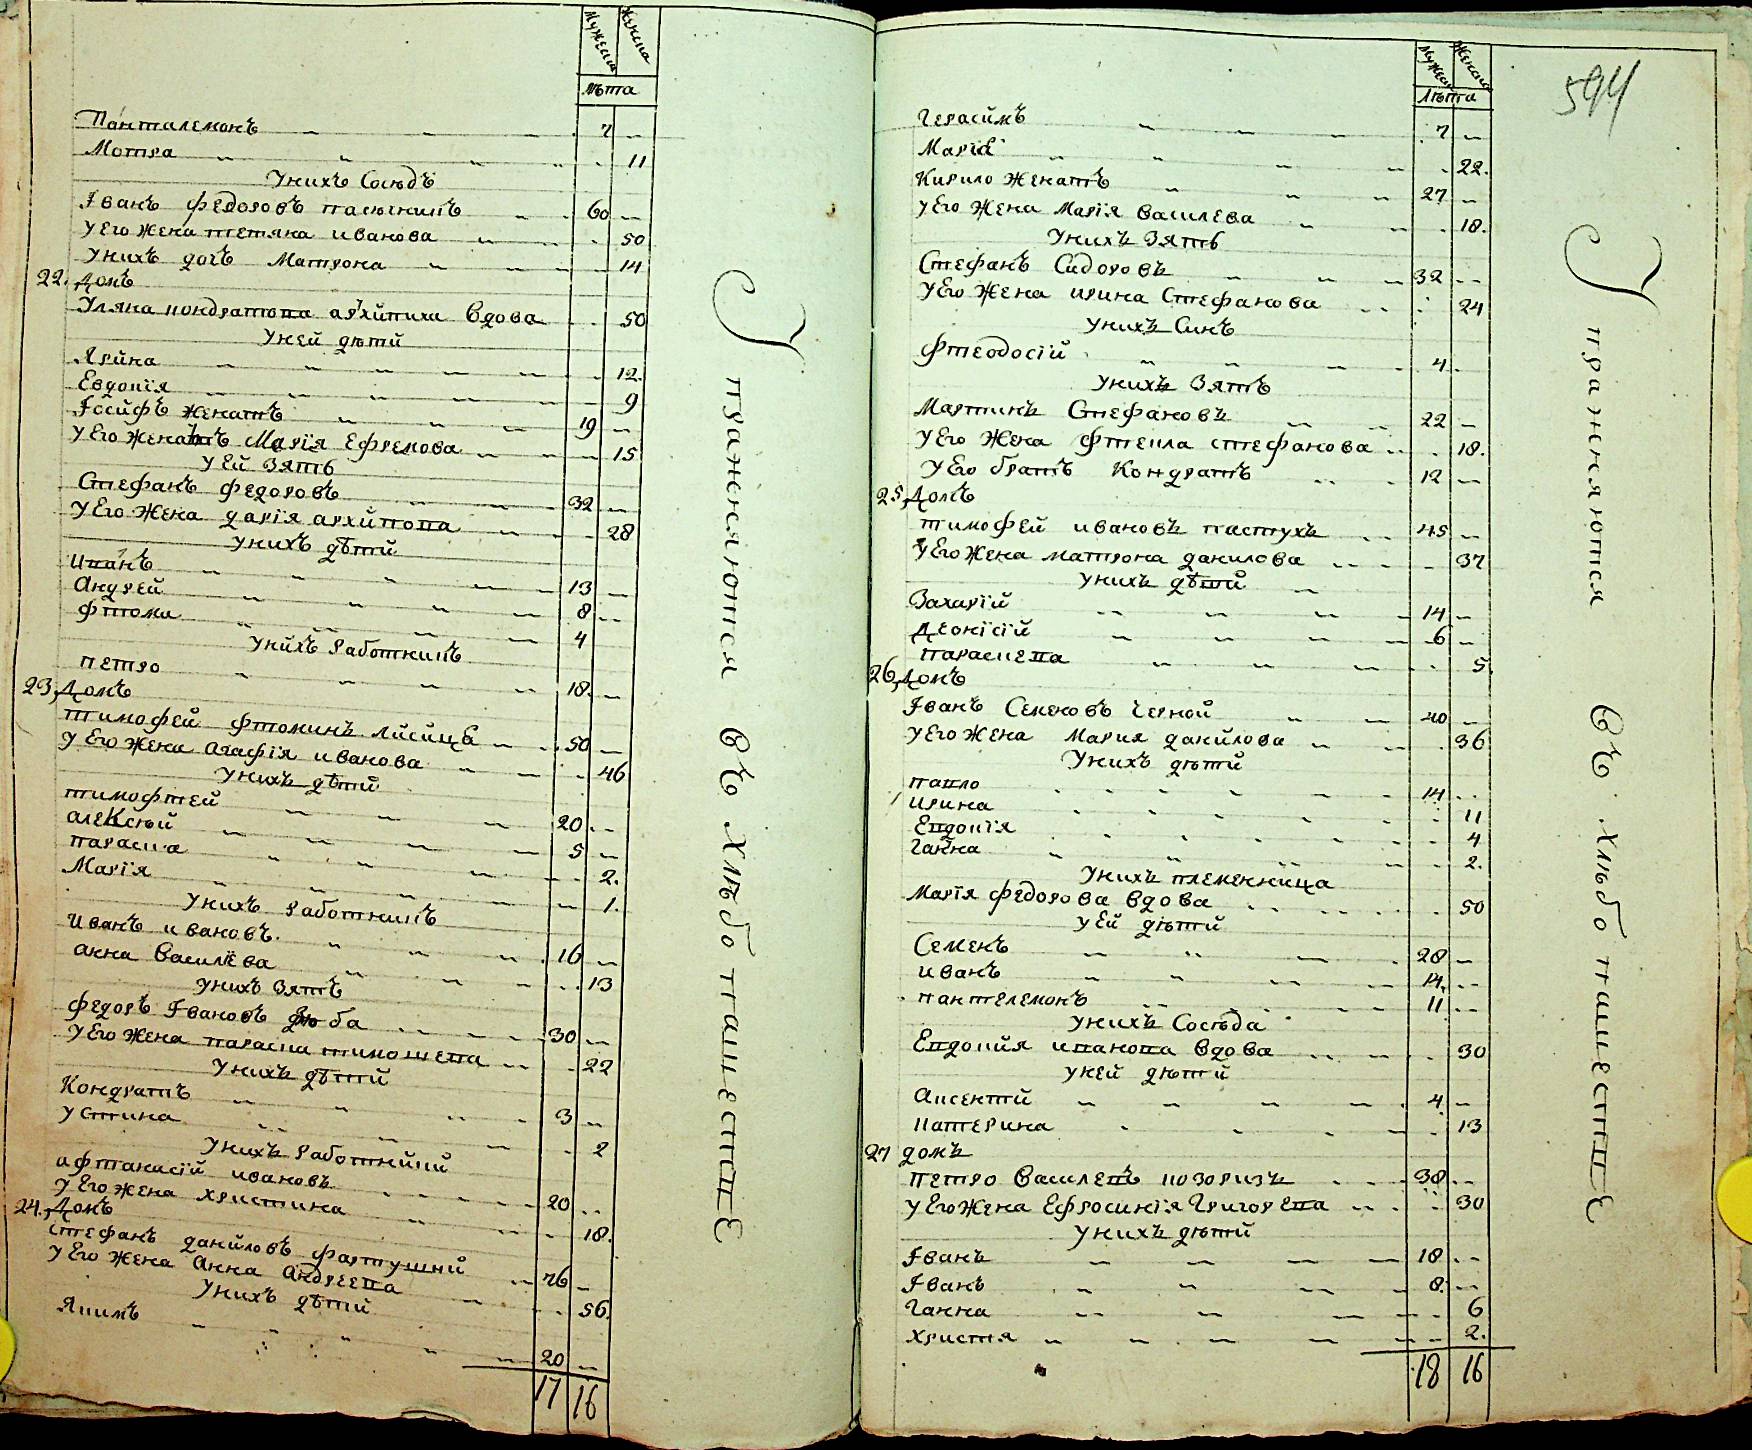 Мужеска Женска
Лѣта
Панталемонъ 7
Мотра 11
Унихъ Сосѣдъ
Іванъ Федоровъ пасечникъ 60
Уего жена тетяна иванова 50
Унихъ дочъ Матрона 14
22. Домъ
Уляна кондратова архипиха вдова 50
Уней дѣтй
Ярйна 12.
Евдокія 9
Іосифъ женатъ 19
Уего жена Марія Ефремова 15
Уей зять
Стефанъ Федоровъ 32
Уего жена дарія архйпова 28
Унихъ дѣтй
Иванъ 13
Андрей 8
Фтома 4
Унихъ работникъ
петро 18.
23, Домъ
тимофей фтоминъ лисица 50
Уего жена агафія иванова 46
Унихъ дѣтй
тимофтей 20
алексѣй 5
параска 2.
Марія 1.
Унихъ работникъ
Иванъ ивановъ 16
анна василева 13
Унихъ зятъ
Федоръ Івановъ дюба 30
Уего жена параска тимошева 22
Унихъ дѣтй
Кондратъ 3
Устина 2
Унихъ работнйкй
афтанасій ивановъ 20
Уего жена христина 18.
24. Домъ
Стефанъ данйловъ фартушнй 76
Уего жена анна андреева 56.
Унихъ дѣтй
Якимъ 20
17 16
Упражняются въ хлѣбопашествѣ
Мужеска Женска
Лѣта
594
Герасимъ 7
Марія 22.
Кирило женатъ 27
Уего жена Марія василева 18.
Унихъ зять
Стефанъ Сидоровъ 32
Уего жена ирина Стефанова 24
Унихъ Синъ
Фтеодосій 4
Унихъ зять
Мартинъ Стефановъ 22
Уего жена Фтекла стефанова 18.
Уего братъ Кондратъ 12
25, Домъ
тимофей ивановъ пастухъ 45
Уего жена матрона данилова 37
Унихъ дѣтй
Захарій 14
Деонісій 6
параскева 5.
26, Домъ
Іванъ Семеновъ черной 40
Уего жена Мария данйлова 36
Унихъ дѣтй
павло 14
ирина 11
Евдокія 4
Ганна 2.
Унихъ племенница
Марія федорова вдова 50
Уей дѣтй
Семенъ 28
иванъ 14.
пантелемонъ 11
Унихъ Сосѣда
Евдокйя иванова вдова 30
Уней дѣтй
Аксентй 4
катерина 13
27 домъ
петро Василевъ козоризъ 38
Уего жена Ефросинія Григорева 30
Унихъ дѣтй
Іванъ 18
Іванъ 8.
Ганна 6
христя 2.
18 16
Упражняются въ хлѣбопашествѣ